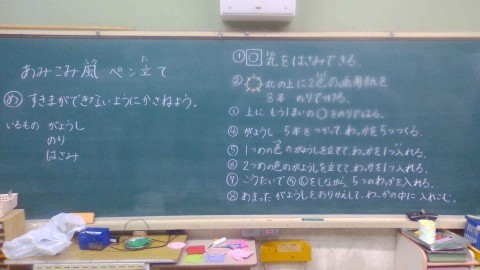 あみこみ風 ペン立て
め すきまができないようにかさねよう。
いるもの がようし
のり
はさみ
① 丸をはさみできる。
② 丸の上に2色の画用紙を
8本 のりではる。
③ 上に もう1まいの〇をのりではる。
④ がようし 5本をつなげて、わっかを5つつくる。
⑤ 1つめの色のがようしを立てて、わっかを1つ入れる。
⑥ 2つめの色のがようしを立てて、わっかを1つ入れる。
⑦ こうたいで⑤⑥をしながら、5つのわっかを入れる。
⑧ あまったがようしをおりかえして、わっかの中に入れこむ。